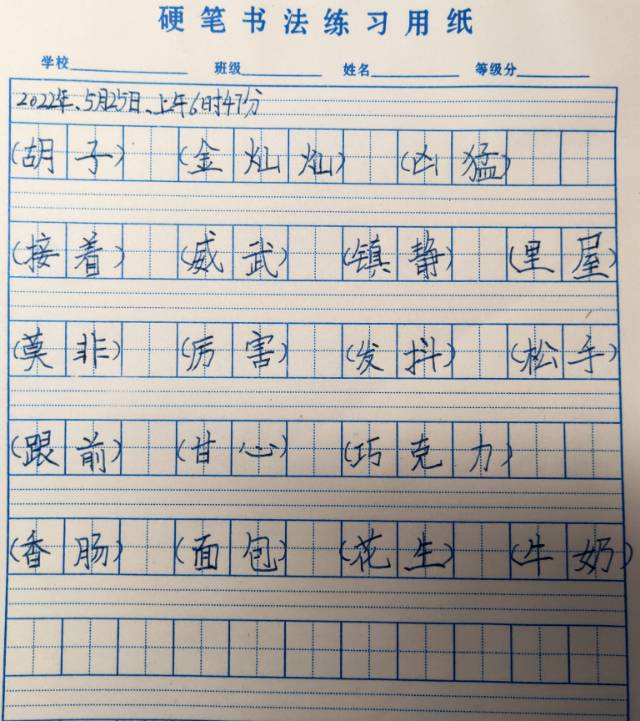 硬笔书法练习用纸
学校 班级 姓名 等级分
2022年、5月25日、上午6时47分
(胡子) (金灿灿) (凶猛)
(接着) (威武) (镇静) (里屋)
(莫非) (厉害) (发抖) (松手)
(跟前) (甘心) (巧克力)
(香肠) (面包) (花生) (牛奶)